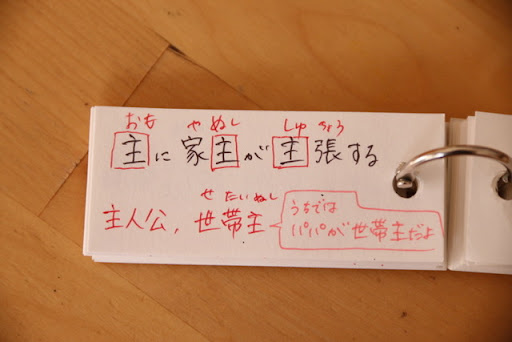 おも やぬし しゅ ちょう
主に家主が主張する
せ たい ぬし
主人公, 世帯主
うちでは
パパが世帯主だよ